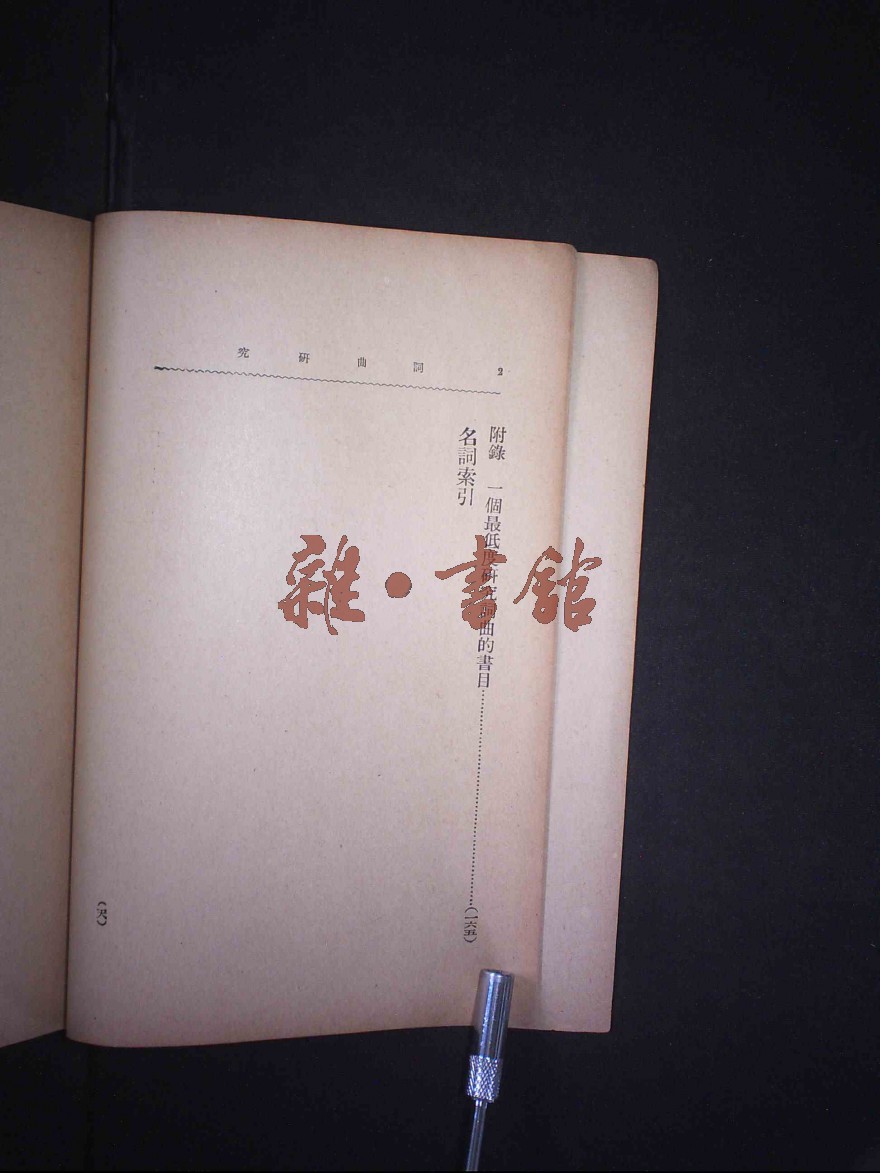 2 詞曲研究
附錄 一個最低度研究詞曲的書目……(一六五)
名詞索引
雜•書館